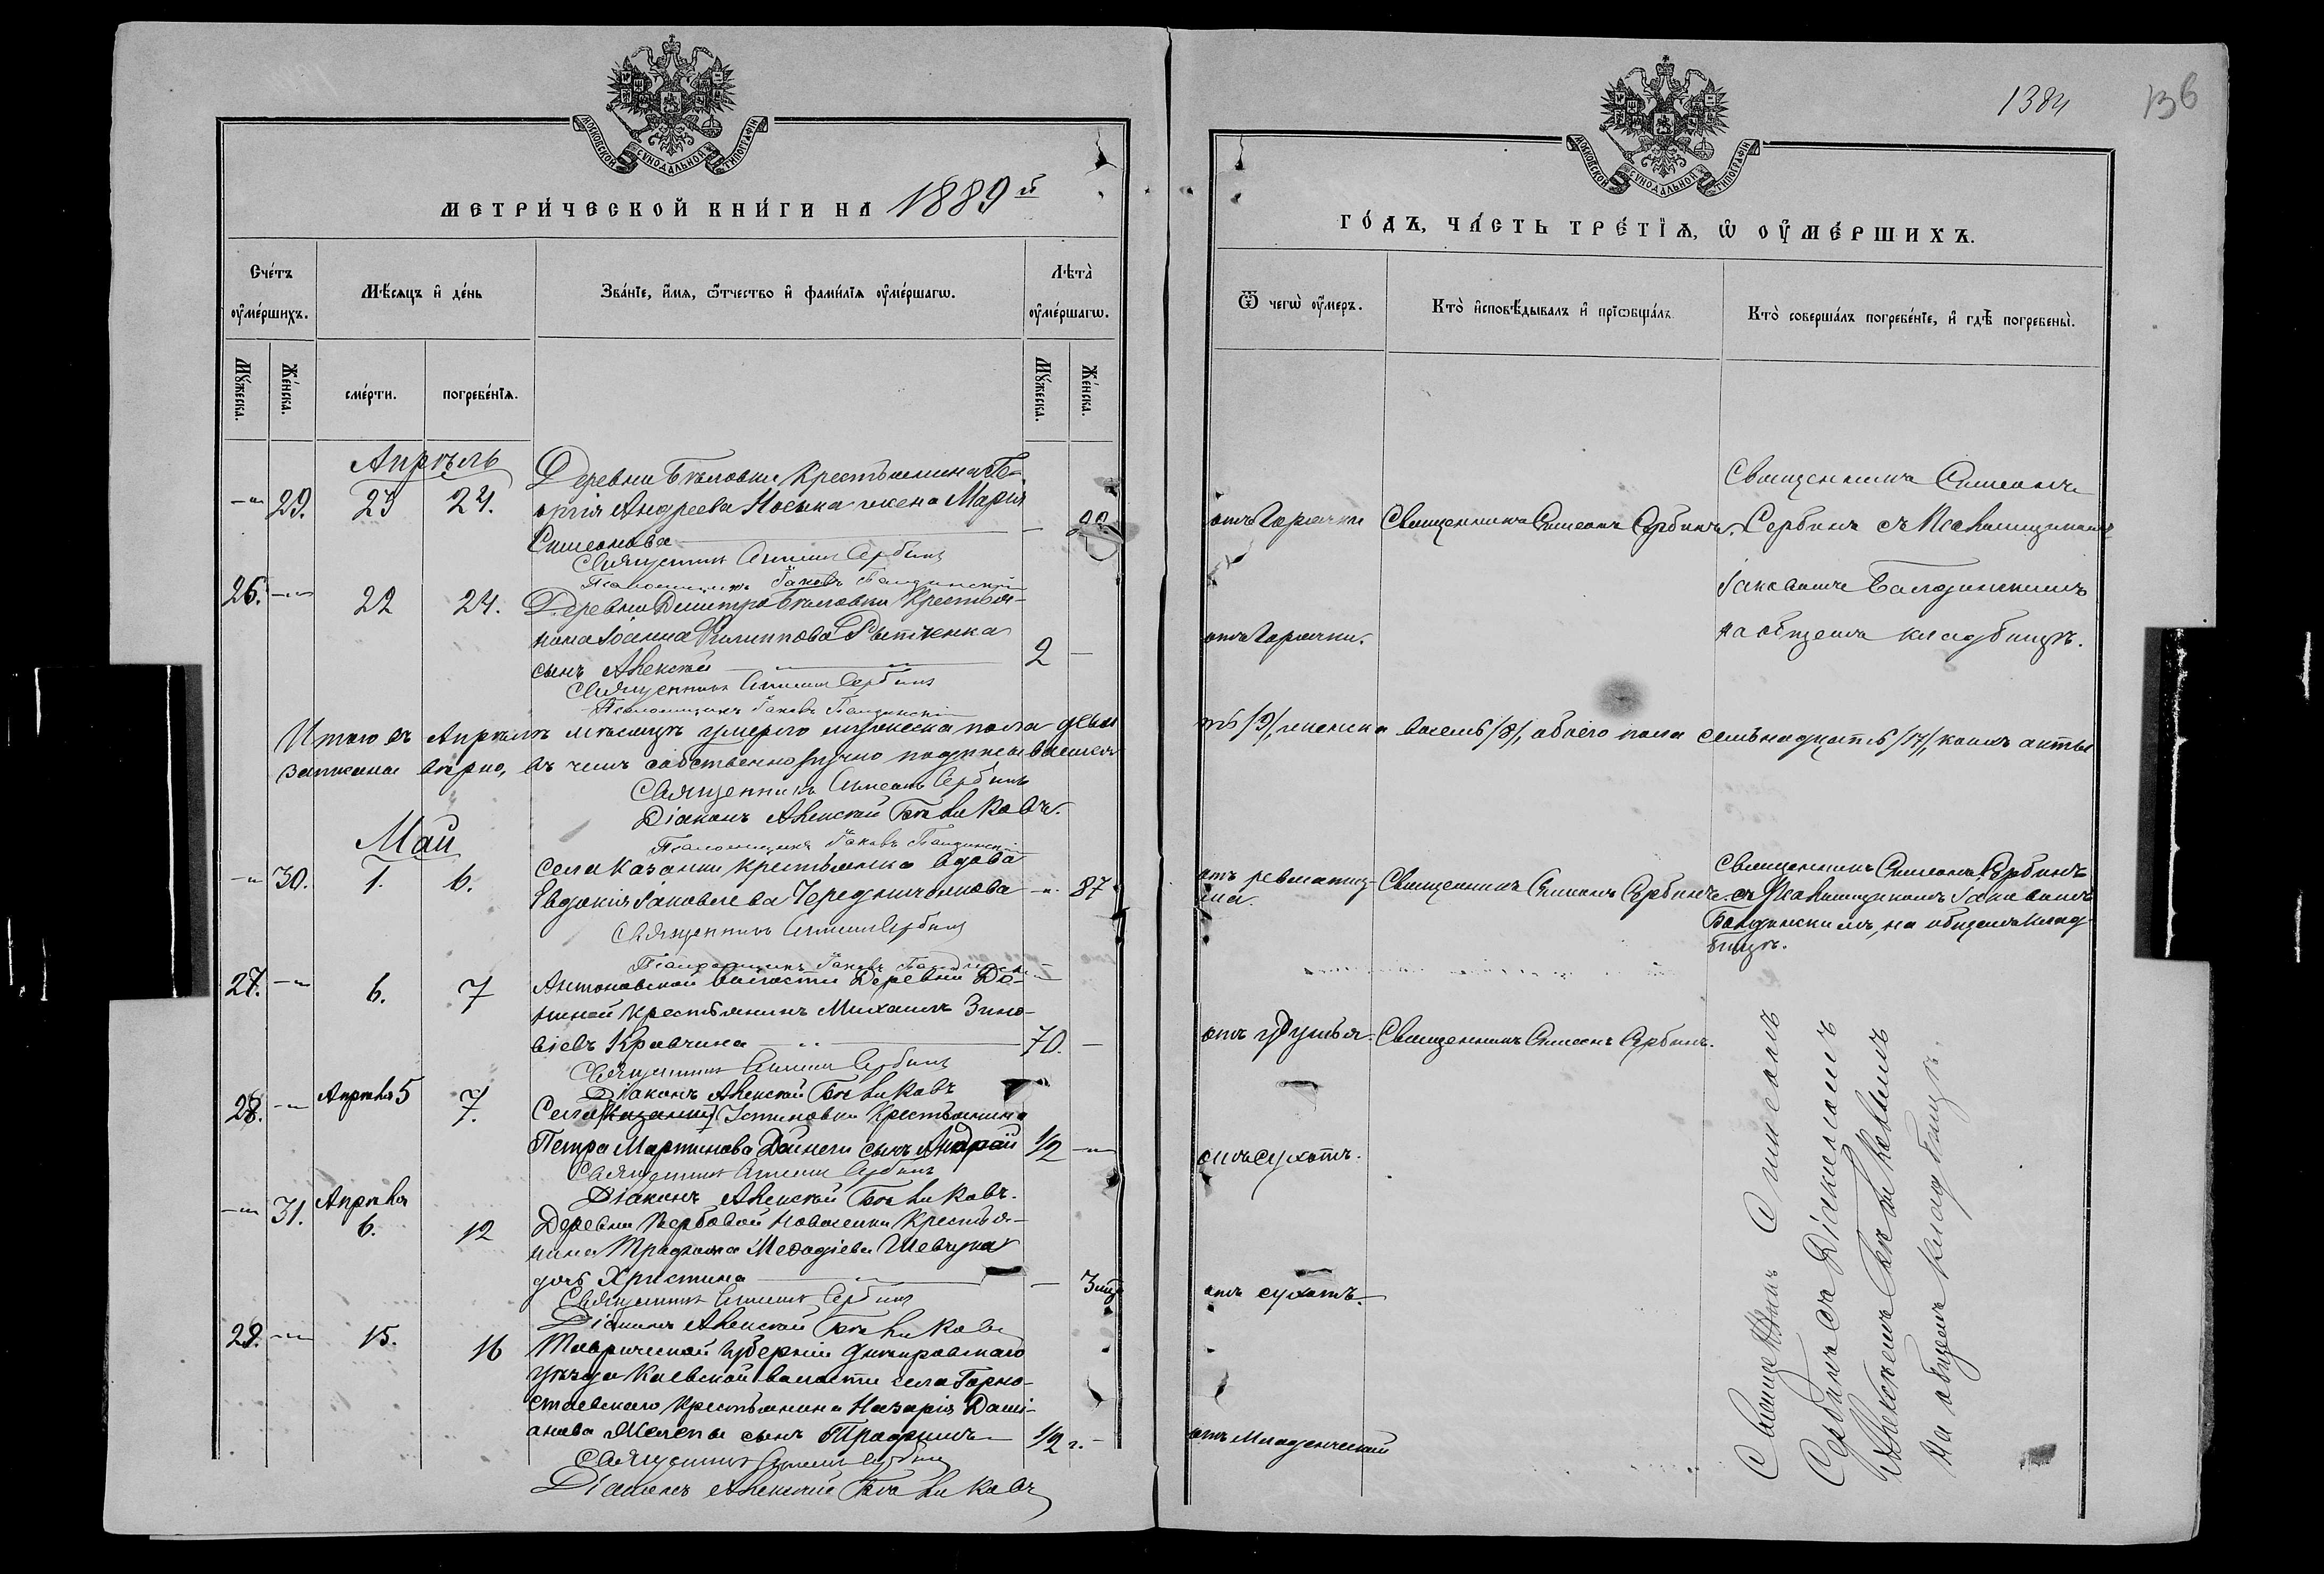 МОСКОВСКОЙ СѴНОДАЛЬНОЙ ТИПОГРАФІИ
МЕТРИ́ЧЕСКОЙ КНИ́ГИ НА 1889й
Сче́тъ ᲂу҆ме́ршихъ.
Мѣ́сяцъ и҆ де́нь
Зва́нїе, и҆́мѧ, ѻ҆́тчество и҆ фами́лїѧ ᲂу҆ме́ршагѡ.
Лѣта̀ ᲂу҆ме́ршагѡ.
Мꙋ́жеска.
Же́нска.
сме́рти.
погребе́нїѧ.
Мꙋ́жеска.
Же́нска.
Апрѣль
29. 23 24.
Деревни Бѣловки Крестьянина
Андреева Носенка жена Марія
Симеонова
Священникъ Симеонъ Сербинъ
Псаломщикъ Іаковъ Балдинскій
26. 22 24.
Деревни Димитро Бѣловки Крестья-
нина Іоанна Филиппова
сынъ Алексѣй 2
Священникъ Симеонъ Сербинъ
Псаломщикъ Іаковъ Балдинскій
Итого въ Апрѣлѣ мѣсяцѣ умерло мужеска пола девя
записаны вѣрно, въ чемъ собственноручно подписываемся
Священникъ Симеонъ Сербинъ
Діаконъ Алексѣй
Псаломщикъ Іаковъ Балдинскій
Май
30. 1. 6.
Села Казанки крестьянка вдова
Евдокія Іаковлева Чередниченкова 87
Священникъ Симеонъ Сербинъ
Псаломщикъ Іаковъ Балдинскій
27. 6. 7
Антоновской волости Деревни До-
Крестьянинъ Михаилъ Зино-
віевъ Кравчина 70.
Священникъ Симеонъ Сербинъ
Діаконъ Алексѣй
28. Апрѣля 5 7.
Села [Казанки] Устиновки Крестьянина
Петра Мартинова Дейнеги сынъ Андрей 1/2
Священникъ Симеонъ Сербинъ
Діаконъ Алексѣй
31. Апрѣля
6. 12
Деревни Вербовой Новоселки Крестья-
нина Меѳодіева Шевчука
дочь Христина 3
Священникъ Симеонъ Сербинъ
Діаконъ Алексѣй
29. 15. 16
Таврической губерніи Днѣпровскаго
уѣзда Каевской волости села Горно-
стаевскаго крестьянина Назарія Дамі-
анова сынъ Трофимъ 1/2 г.
Священникъ Симеонъ Сербинъ
Діаконъ Алексѣй
1384
136
МОСКОВСКОЙ СѴНОДАЛЬНОЙ ТИПОГРАФІИ
ГО́ДЪ, ЧА́СТЬ ТРЕ́ТЇѦ, Ѡ҆ ОУ҆МЕ́РШИХЪ.
Ѿ чегѡ̀ ᲂу҆́меръ.
Кто̀ и҆сповѣ́дывалъ и҆ прїѡбща́лъ.
Кто̀ соверша́лъ погребе́нїе, и҆ гдѣ̀ погребены̀.
отъ Горячки Священникъ Симеонъ Сербинъ.
Священникъ Симеонъ
Сербинъ съ Псаломщикомъ
Іаковомъ Балдинскимъ
на общемъ кладбищѣ.
отъ Горячки.
ть /9/, женска восемь /8/, обоего пола семьнадцать /17/, коихъ акты
отъ ревматиз-
ма. Священникъ Симеонъ Сербинъ.
Священникъ Симеонъ Сербинъ
съ Псаломщикомъ Іаковомъ
Балдинскимъ, на общемъ клад-
бищѣ.
отъ удушья. Священникъ Симеонъ Сербинъ.
отъ сухотъ.
отъ сухотъ.
отъ младенческой
Священникъ Симеонъ
Сербинъ съ Діакономъ
Алексѣемъ
на общемъ кладбищѣ.